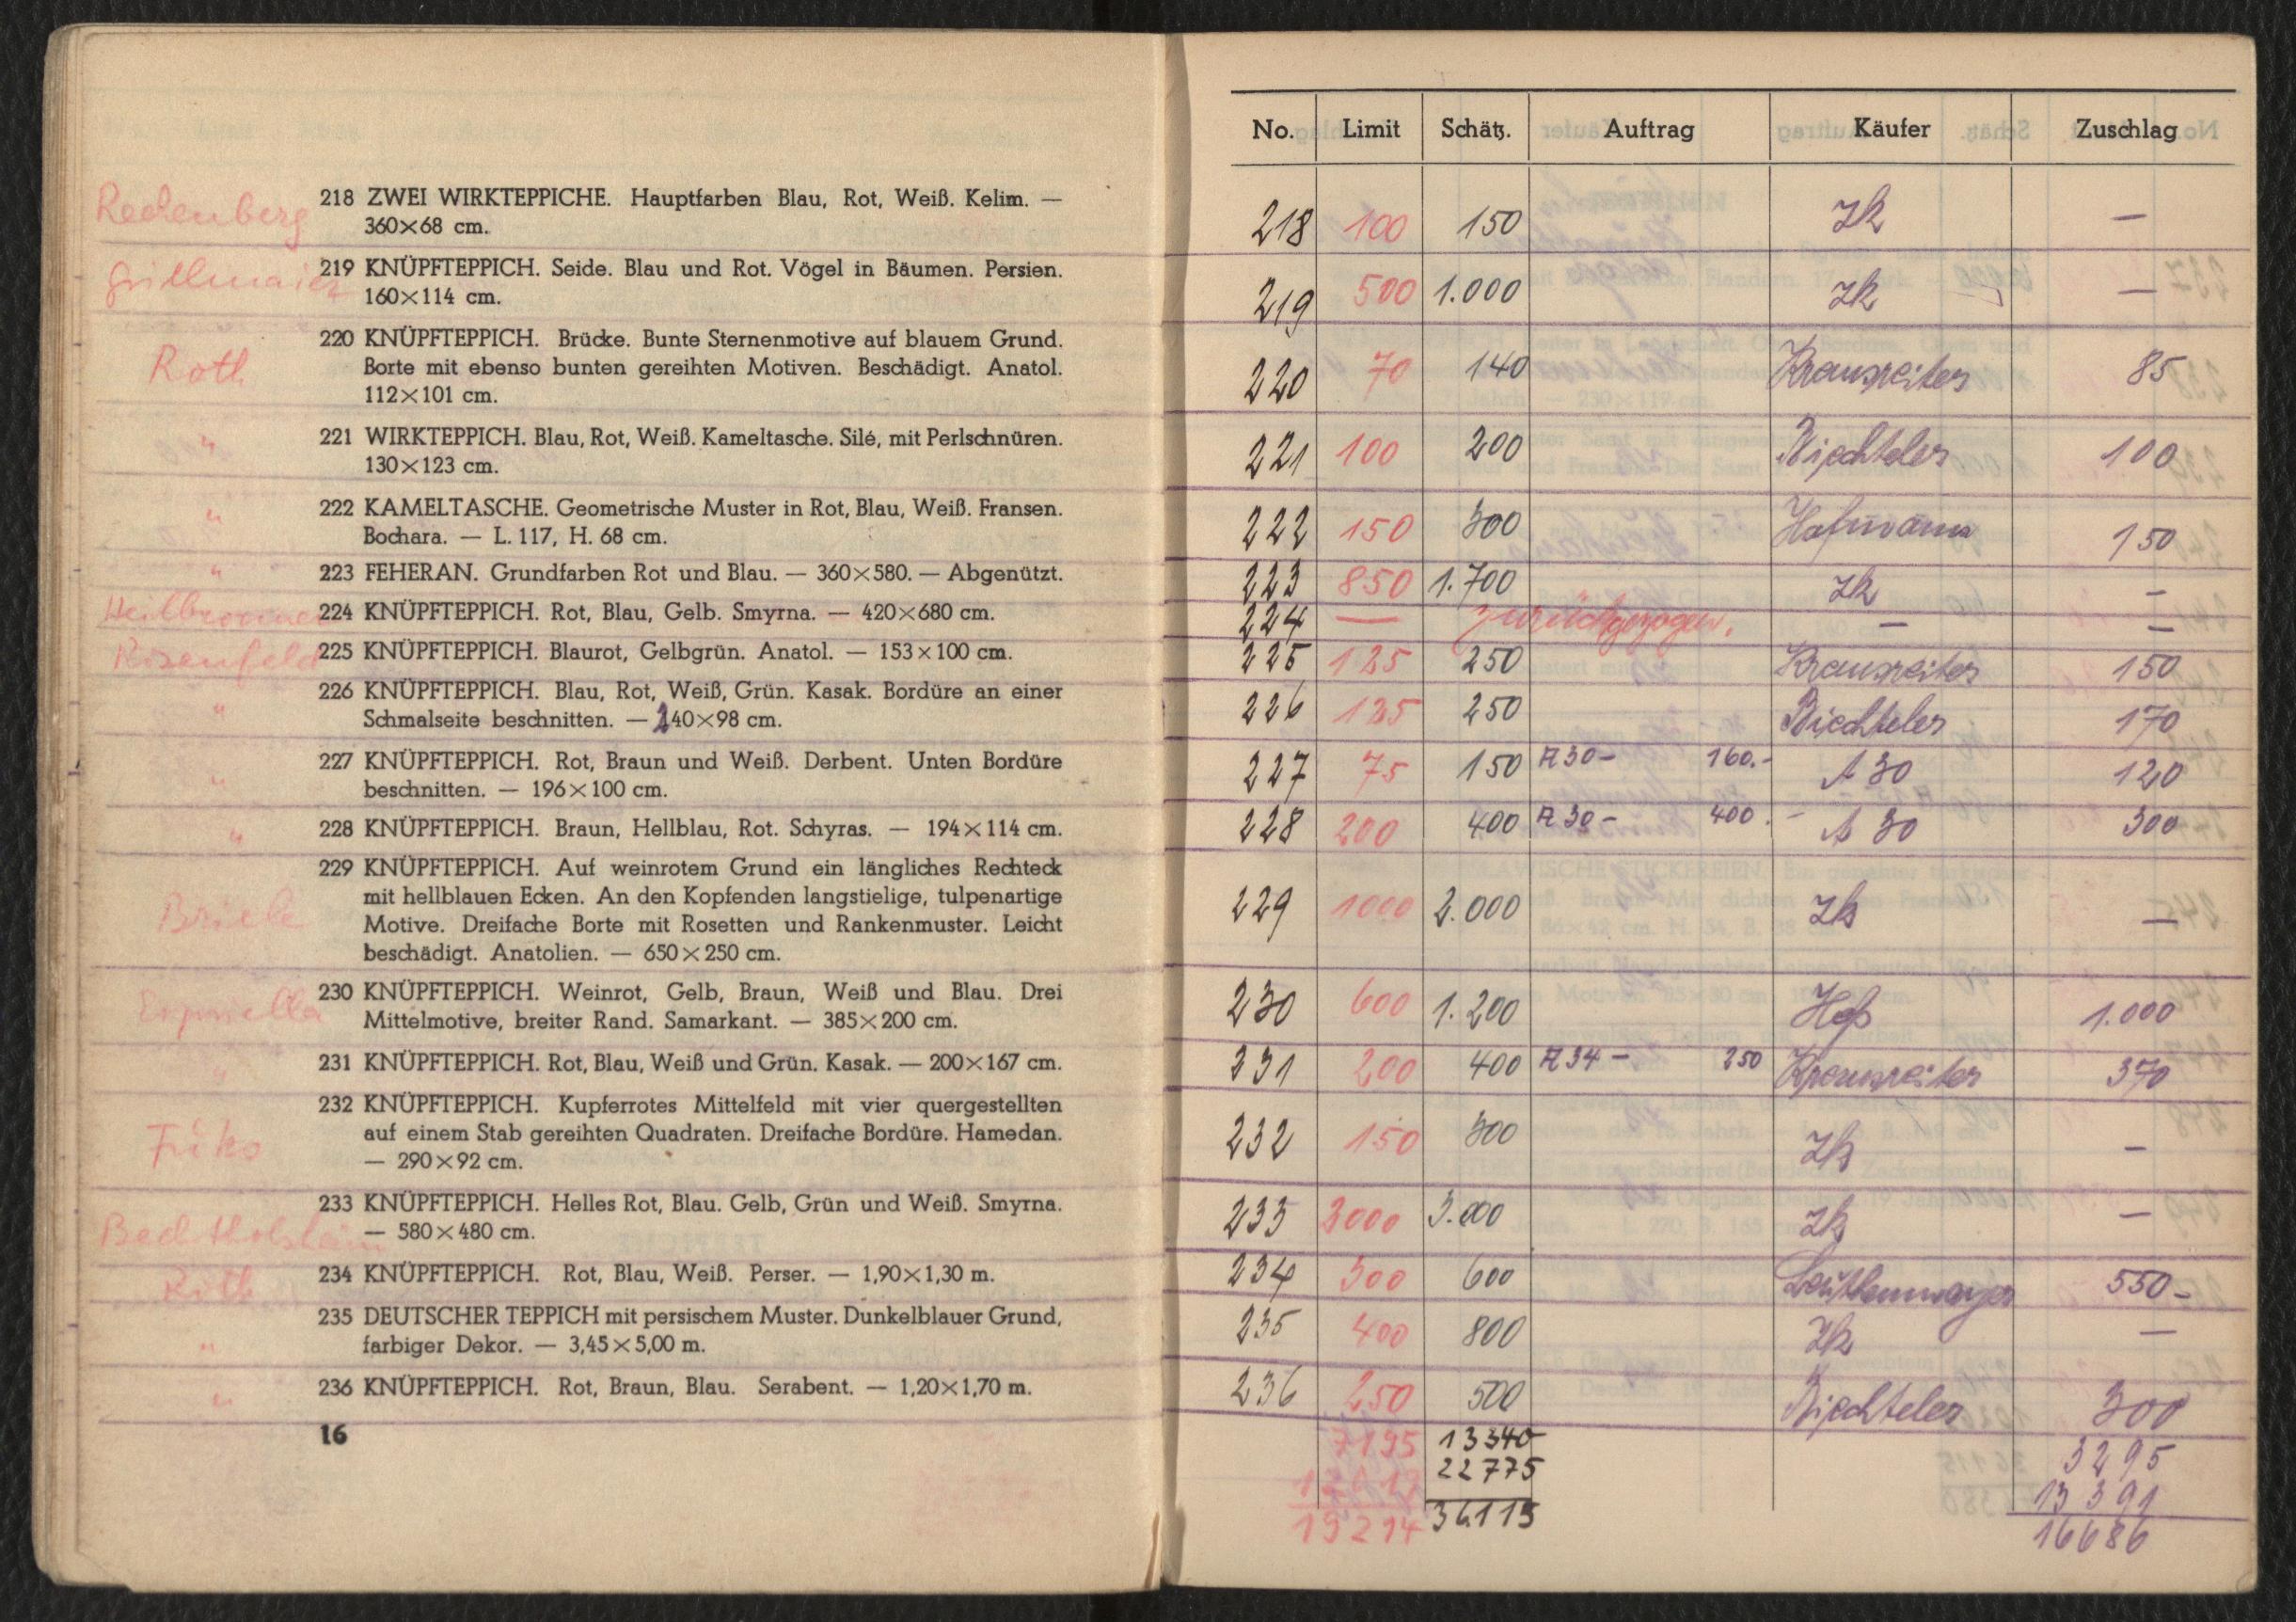 Rechenberg
218 ZWEI WIRKTEPPICHE. Hauptfarben Blau, Rot, Weiß. Kelim. —
360×68 cm.
Grillmaier
219 KNÜPFTEPPICH. Seide. Blau und Rot. Vögel in Bäumen. Persien.
160×114 cm.
220 KNÜPFTEPPICH. Brücke. Bunte Sternenmotive auf blauem Grund.
Roth
Borte mit ebenso bunten gereihten Motiven. Beschädigt. Anatol.
112×101 cm.
" 221 WIRKTEPPICH. Blau, Rot, Weiß. Kameltasche. Silé, mit Perlschnüren.
130×123 cm.
" 222 KAMELTASCHE. Geometrische Muster in Rot, Blau, Weiß. Fransen.
Bochara. — L. 117, H. 68 cm.
" 223 FEHERAN. Grundfarben Rot und Blau. — 360×580. — Abgenützt.
Heilbronner 224 KNÜPFTEPPICH. Rot, Blau, Gelb. Smyrna. — 420×680 cm.
Rosenfeld 225 KNÜPFTEPPICH. Blaurot, Gelbgrün. Anatol. — 153×100 cm.
" 226 KNÜPFTEPPICH. Blau, Rot, Weiß, Grün. Kasak. Bordüre an einer
Schmalseite beschnitten. — 240×98 cm.
" 227 KNÜPFTEPPICH. Rot, Braun und Weiß. Derbent. Unten Bordüre
beschnitten. — 196×100 cm.
" 228 KNÜPFTEPPICH. Braun, Hellblau, Rot. Schyras. — 194×114 cm.
229 KNÜPFTEPPICH. Auf weinrotem Grund ein längliches Rechteck
mit hellblauen Ecken. An den Kopfenden langstielige, tulpenartige
Motive. Dreifache Borte mit Rosetten und Rankenmuster. Leicht
beschädigt. Anatolien. — 650×250 cm.
230 KNÜPFTEPPICH. Weinrot, Gelb, Braun, Weiß und Blau. Drei
Mittelmotive, breiter Rand. Samarkant. — 385×200 cm.
" 231 KNÜPFTEPPICH. Rot, Blau, Weiß und Grün. Kasak. — 200×167 cm.
232 KNÜPFTEPPICH. Kupferrotes Mittelfeld mit vier quergestellten
auf einem Stab gereihten Quadraten. Dreifache Bordüre. Hamedan.
— 290×92 cm.
233 KNÜPFTEPPICH. Helles Rot, Blau. Gelb, Grün und Weiß. Smyrna.
— 580×480 cm.
Roth 234 KNÜPFTEPPICH. Rot, Blau, Weiß. Perser. — 1,90×1,30 m.
" 235 DEUTSCHER TEPPICH mit persischem Muster. Dunkelblauer Grund,
farbiger Dekor. — 3,45×5,00 m.
" 236 KNÜPFTEPPICH. Rot, Braun, Blau. Serabent. — 1,20×1,70 m.
16
No. Limit Schätz. Auftrag Käufer Zuschlag
218 100 150 zk —
219 500 1.000 zk —
220 70 140 Krausreiter 85
221 100 200 Biechteler 100
222 150 300 Hofmann 150
223 850 1.700 zk —
224 — zurückgezogen. — —
225 125 250 Krausreiter 150
226 125 250 Biechteler 170
227 75 150 A 30 — 160.- A 30 120
228 200 400 A 30 — 400.- A 30 300
229 1000 2.000 zk —
230 600 1.200 1.000
231 200 400 A 34 — 250 Krausreiter 370
232 150 300 zk —
233 3.000 zk —
234 300 600 550-
235 400 800 zk —
236 250 500 Biechteler 300
7195 13340 3295
22775 13391
19214 36115 16686